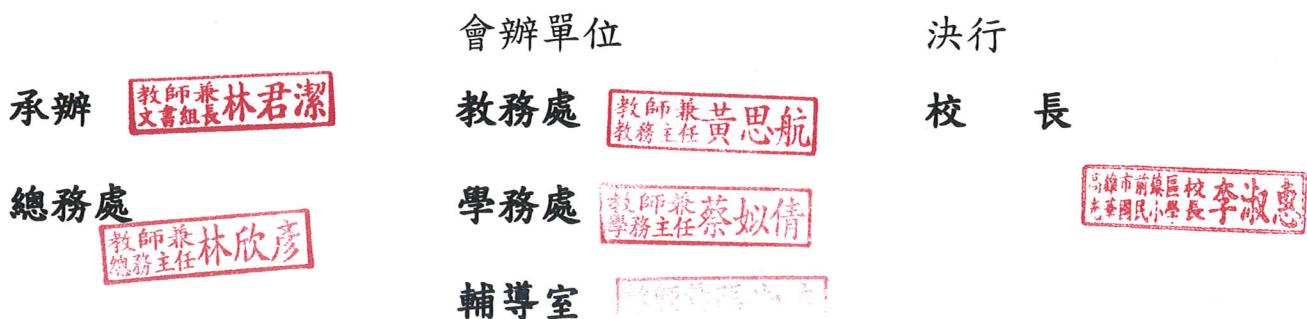 會辦單位
決行
承辦
教師兼
文書組長
林君潔
教務處
教師兼
教務主任
黃思航
校 長
總務處
教師兼
總務主任
林欣彥
學務處
教師兼
學務主任
蔡姒倩
高雄市前鎮區
光華國民小學
校長
李淑惠
輔導室